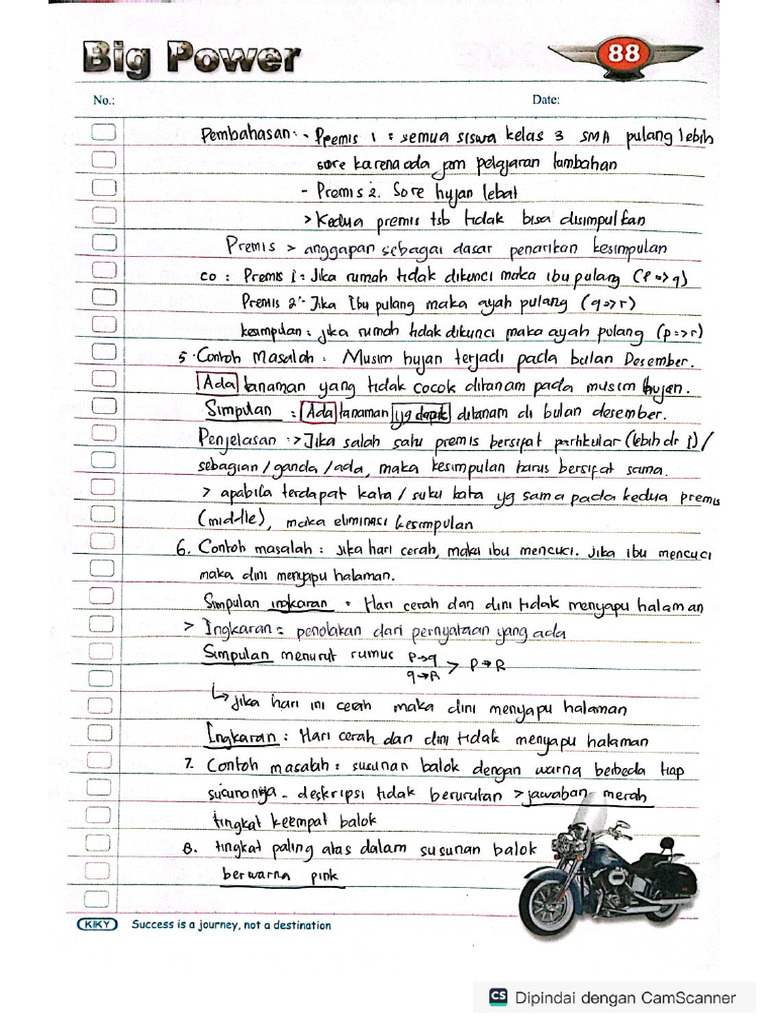 Big Power
88
No.:
Date:
Pembahasan: - Premis 1 : semua siswa kelas 3 SMA pulang lebih
sore karena ada jam pelajaran tambahan
- Premis 2. Sore hujan lebat
> Kedua premis tsb tidak bisa disimpulkan
Premis > anggapan sebagai dasar penarikan kesimpulan
co : Premis 1 : Jika rumah tidak dikunci maka ibu pulang (P => q)
Premis 2 : Jika Ibu pulang maka ayah pulang (q => r)
kesimpulan : jika rumah tidak dikunci maka ayah pulang (p => r)
5. Contoh Masalah : Musim hujan terjadi pada bulan Desember.
Ada tanaman yang tidak cocok ditanam pada musim hujan.
Simpulan : Ada tanaman yg dapat ditanam di bulan desember.
Penjelasan :> Jika salah satu premis bersifat partikular (lebih dr 1) /
sebagian / ganda / ada, maka kesimpulan harus bersifat sama.
> apabila terdapat kata / suku kata yg sama pada kedua premis
(middle), maka eliminasi kesimpulan
6. Contoh masalah : jika hari cerah, maka ibu mencuci. jika ibu mencuci
maka dini menyapu halaman.
Simpulan ingkaran : Hari cerah dan dini tidak menyapu halaman
> Ingkaran = penolakan dari pernyataan yang ada
Simpulan menurut rumus P→q
q→R > P→R
↳ jika hari ini cerah maka dini menyapu halaman
Ingkaran : Hari cerah dan dini tidak menyapu halaman
7. Contoh masalah : susunan balok dengan warna berbeda tiap
susunannya - deskripsi tidak berurutan > jawaban merah
tingkat keempat balok
8. tingkat paling atas dalam susunan balok
berwarna pink
KIKY Success is a journey, not a destination
CS Dipindai dengan CamScanner